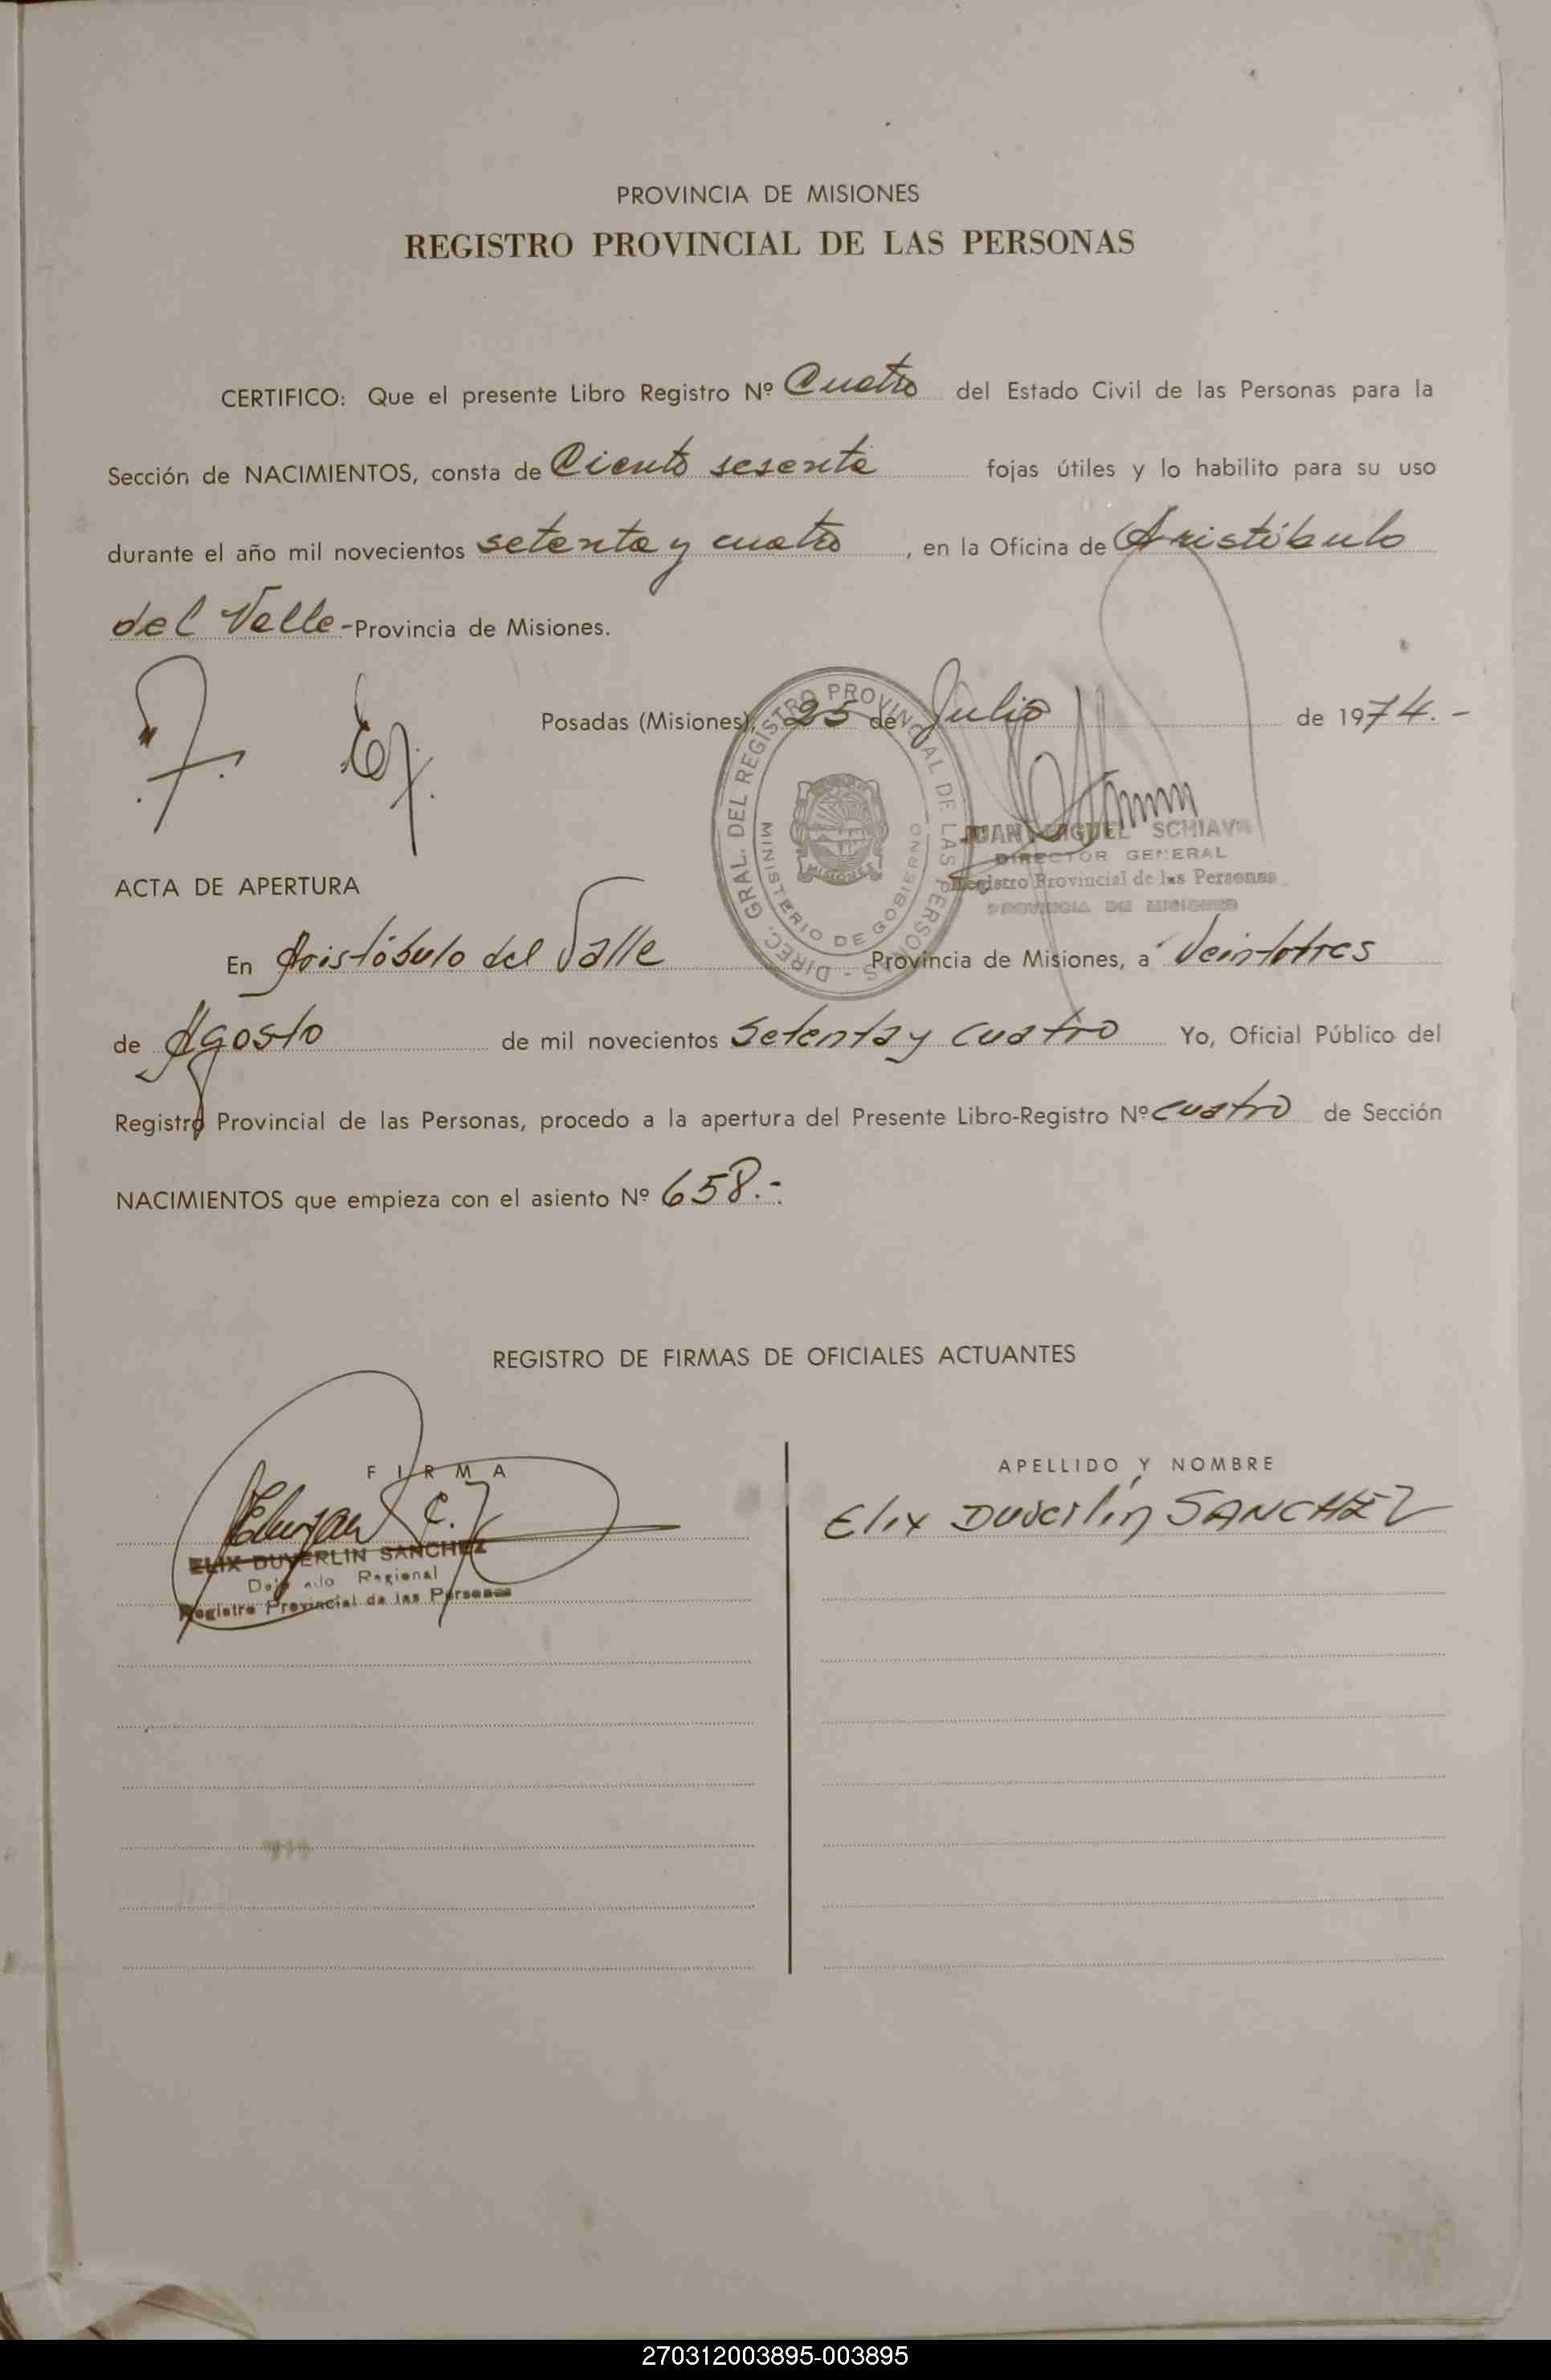 PROVINCIA DE MISIONES
REGISTRO PROVINCIAL DE LAS PERSONAS
CERTIFICO: Que el presente Libro Registro Nº Cuatro del Estado Civil de las Personas para la
Sección de NACIMIENTOS, consta de Ciento sesenta fojas útiles y lo habilito para su uso
durante el año mil novecientos setenta y cuatro, en la Oficina de Aristóbulo
del Valle-Provincia de Misiones.
Posadas (Misiones), 25 de Julio de 1974.-
DIREC. GRAL. DEL REGISTRO PROVINCIAL DE LAS PERSONAS -
MINISTERIO DE GOBIERNO
MISIONES
JUAN MIGUEL SCHIAVO
DIRECTOR GENERAL
Registro Provincial de las Personas
PROVINCIA DE MISIONES
ACTA DE APERTURA
En Aristóbulo del Valle Provincia de Misiones, a Veintitres
de Agosto de mil novecientos Setenta y cuatro Yo, Oficial Público del
Registro Provincial de las Personas, procedo a la apertura del Presente Libro-Registro Nº cuatro de Sección
NACIMIENTOS que empieza con el asiento Nº 658.-
REGISTRO DE FIRMAS DE OFICIALES ACTUANTES
FIRMA
APELLIDO Y NOMBRE
Elix Duverlin SANCHEZ
ELIX DUVERLIN SANCHEZ
Delegado Regional
Registro Provincial de las Personas
270312003895-003895